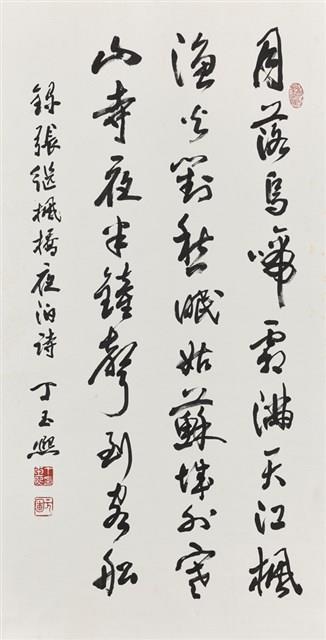 月落烏啼霜滿天江楓
漁火對愁眠姑蘇城外寒
山寺夜半鐘聲到客船
錄張繼楓橋夜泊詩 丁玉熙